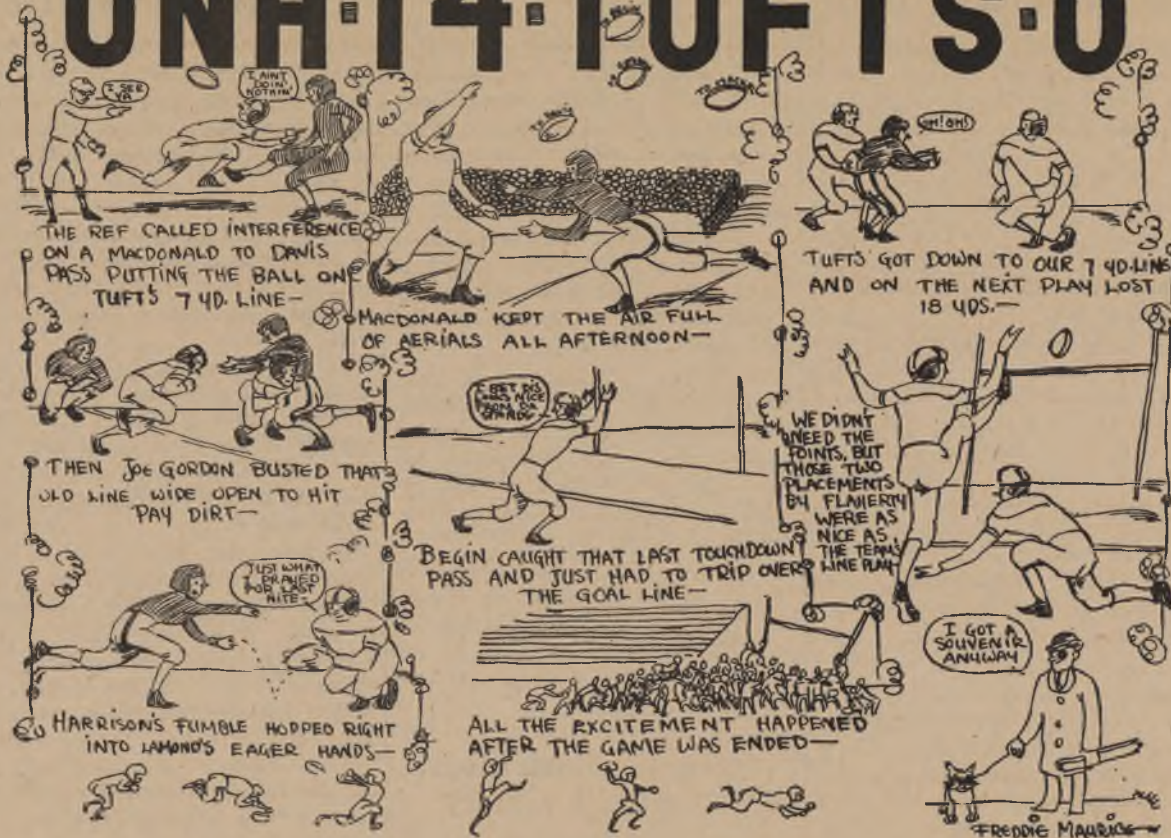 UNH·14·TUFTS·0
TO BEGIN
TO DAVIS
I SEE
YA
I AINT
DOIN'
NOTHIN'
THE REF CALLED INTERFERENCE
ON A MACDONALD TO DAVIS
PASS PUTTING THE BALL ON
TUFTS 7 YD. LINE—
MACDONALD KEPT THE AIR FULL
OF AERIALS ALL AFTERNOON—
UH! OH!
TUFTS GOT DOWN TO OUR 7 YD. LINE
AND ON THE NEXT PLAY LOST
18 YDS.—
THEN JOE GORDON BUSTED THAT
OLD LINE WIDE OPEN TO HIT
PAY DIRT—
I BET DIS
LOOKS NICE
FROM DA
STANDS
BEGIN CAUGHT THAT LAST TOUCHDOWN
PASS AND JUST HAD TO TRIP OVER
THE GOAL LINE—
WE DIDN'T
NEED THE
POINTS, BUT
THOSE TWO
PLACEMENTS
BY FLAHERTY
WERE AS
NICE AS
THE TEAM'S
LINE PLAY
JUST WHAT
I PRAYED
FOR LAST
NITE—
HARRISON'S FUMBLE HOPPED RIGHT
INTO LAMOND'S EAGER HANDS—
ALL THE EXCITEMENT HAPPENED
AFTER THE GAME WAS ENDED—
I GOT A
SOUVENIR
ANYWAY
FREDDIE MAURICE—